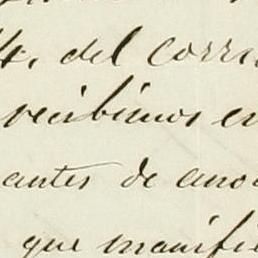 4. del corri
recibimos en
antes de anoc
que manifie